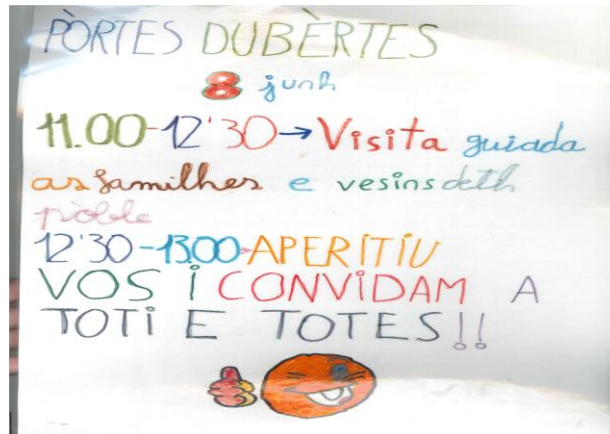 PÒRTES DUBÈRTES
8 junh
11.00-12'30→Visita guiada
as familhes e vesins deth
pòble
12'30-13.00→APERITIU
VOS I CONVIDAM A
TOTI E TOTES!!